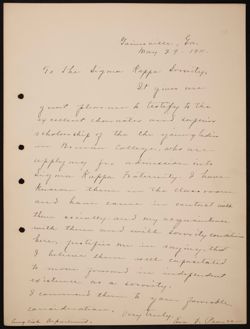 Gainesville, Ga.
May 29 - 1911.
To The Sigma Kappa Sorority,
It gives me
great pleasure to testify to the
excellent character and superior
scholarship of the young ladies
in Brenau College, who are
applying for admission into
Sigma Kappa Fraternity. I have
known them in the classroom
and have come in contact with
them socially and my acquaintance
with them and with Sorority conditions
here justifies me in saying that
I believe them well capacitated
to move forward in independent
existence as a sorority.
I commend them to your favorable
consideration. Very truly,
English Department.